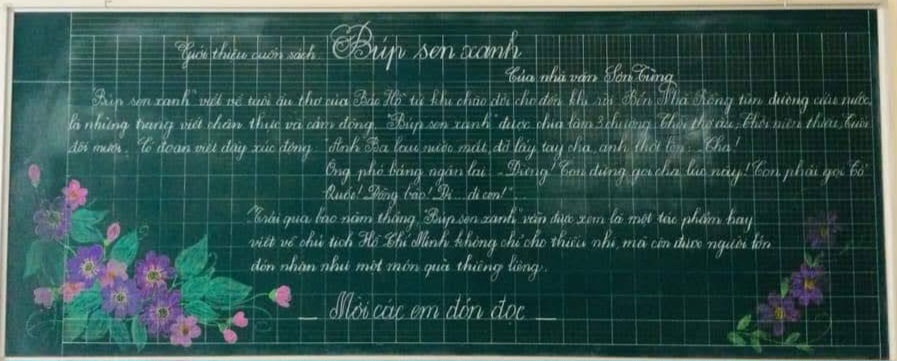 Giới thiệu cuốn sách Búp sen xanh
Của nhà văn Sơn Tùng
"Búp sen xanh" viết về tuổi ấu thơ của Bác Hồ từ khi chào đời cho đến khi rời Bến Nhà Rồng tìm đường cứu nước,
là những trang viết chân thực và cảm động. "Búp sen xanh" được chia làm 3 chương: Thời thơ ấu, Thời niên thiếu, Tuổi
đôi mươi. Có đoạn viết đầy xúc động: Anh Ba lau nước mắt, đỡ lấy tay cha, anh thốt lên: - Cha!
Ông phó bảng ngăn lại: - Đừng! Con đừng gọi cha lúc này! Con phải gọi Tổ
Quốc! Đồng bào! Đi... đi con!"
Trải qua bao năm tháng, "Búp sen xanh" vẫn được xem là một tác phẩm hay
viết về chủ tịch Hồ Chí Minh không chỉ cho thiếu nhi, mà còn được người lớn
đón nhận như một món quà thiêng liêng.
_ Mời các em đón đọc _